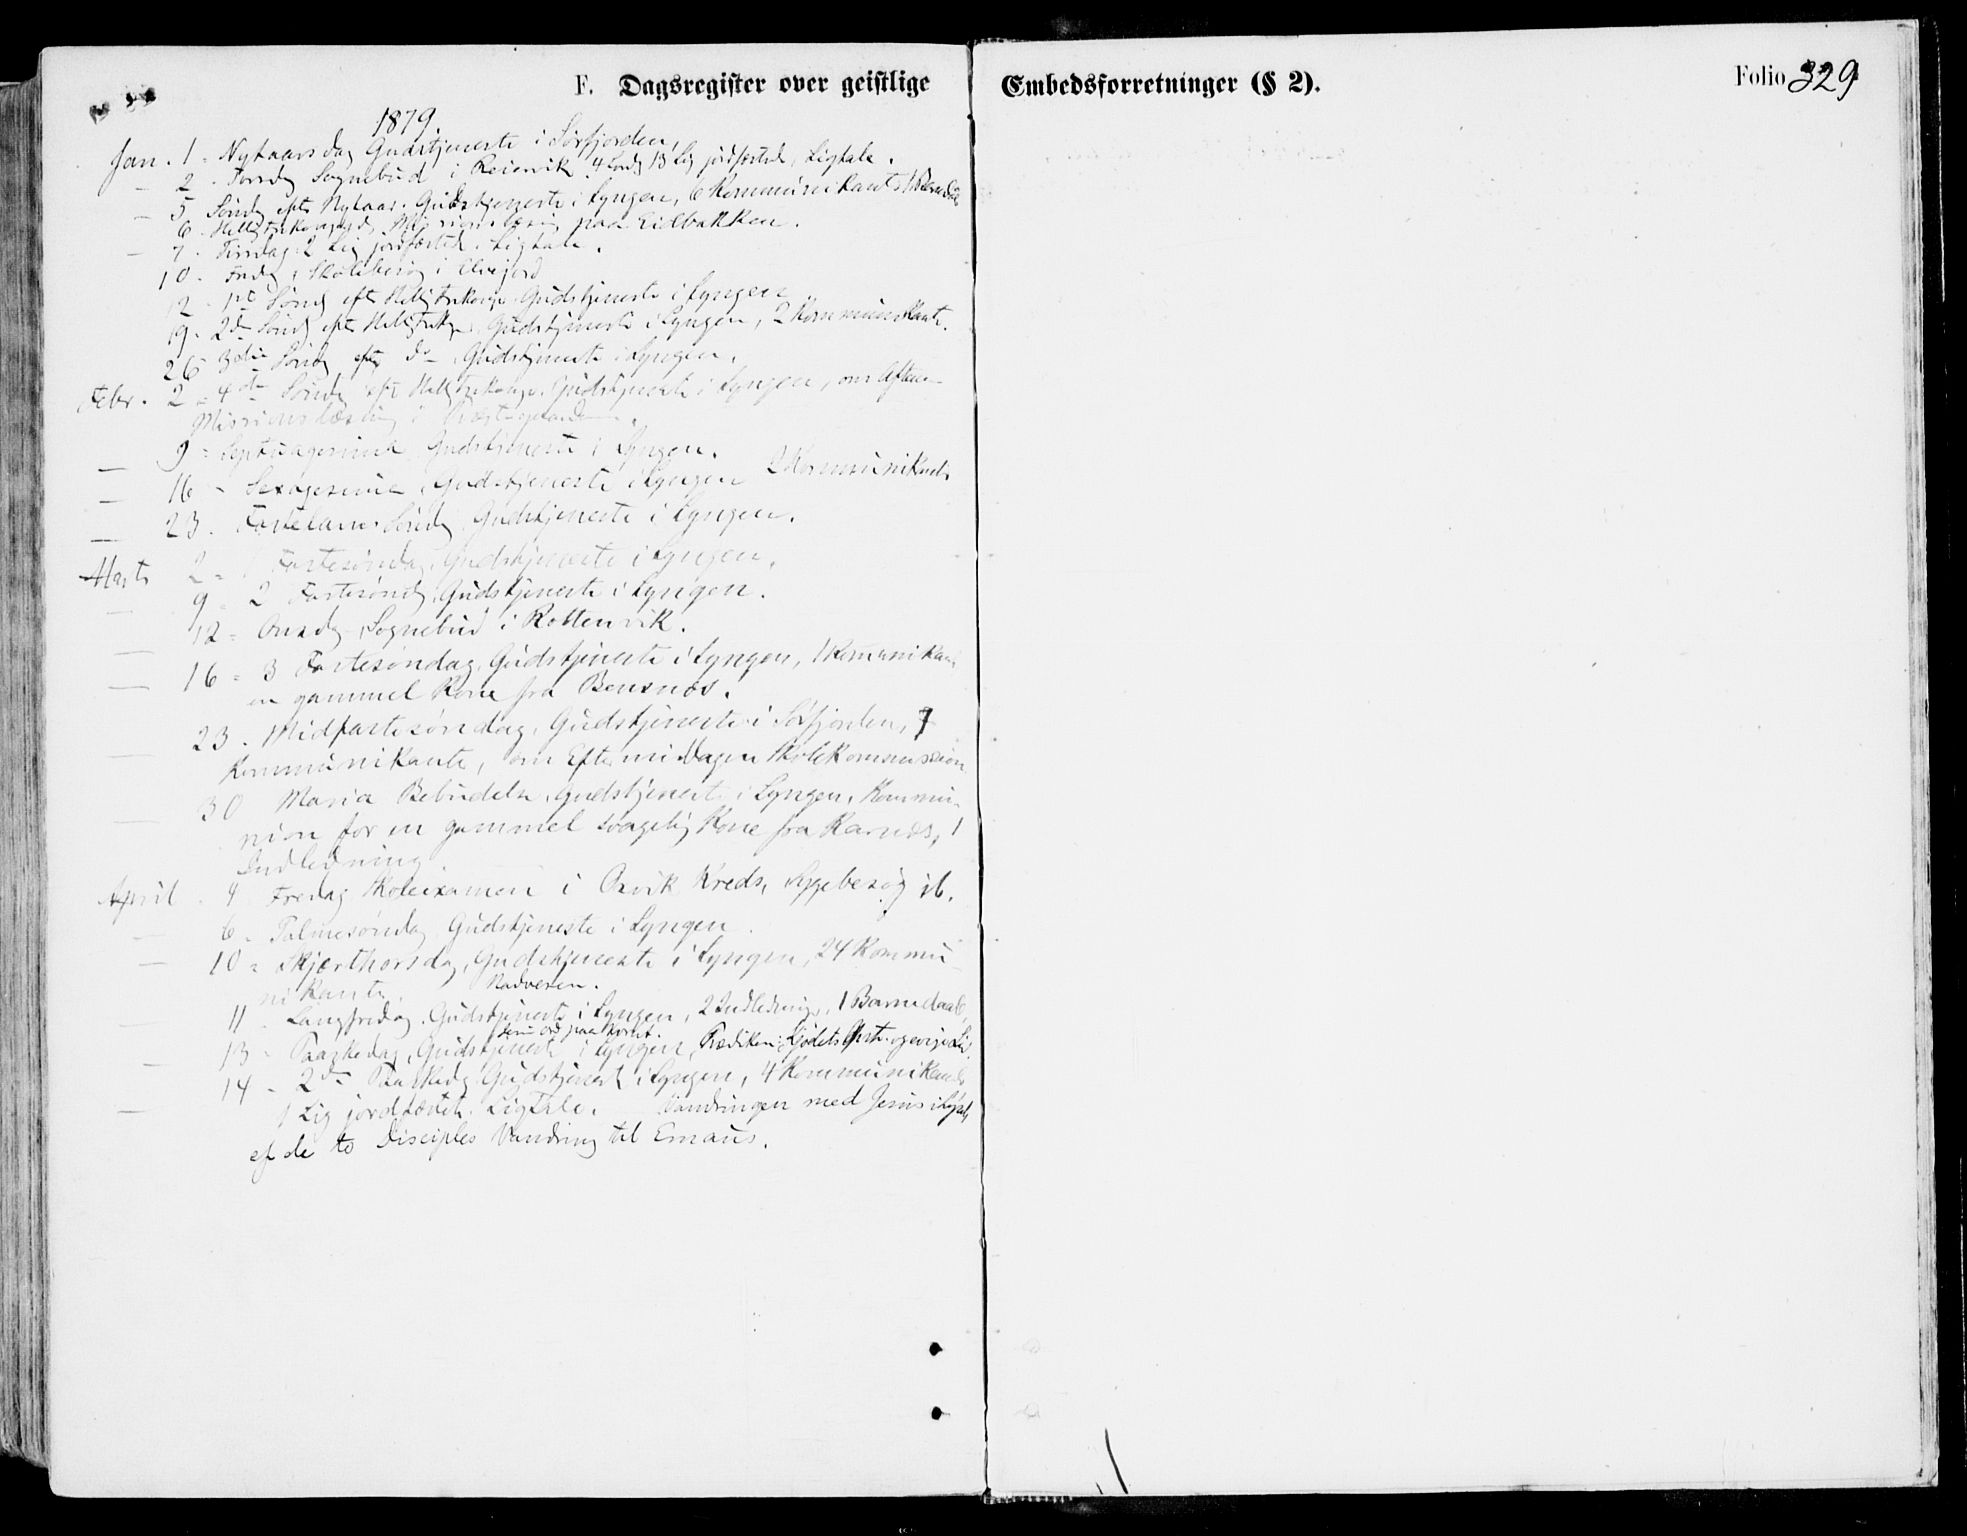 F. Dagsregister over geistlige Embedsforretninger (§ 2).
Folio 329
1879
Jan. 1 - Nytaarsdag Gudstjeneste i Sørfjorden,
— 2 - Torsdg Sognebud i Reiervik 4 Lørdg 13 Lig jordfæstede, Ligtale.
— 5 Søndg eft. Nytaar. Gudstjeneste i Lyngen, 6 Kommunikant. 1 Barnedaab
6 - paa Eidbakken.
— 7 - Tirsdag: 2 Lig jordfæstet. Ligtale.
10 - Fredg, Skolebesøg i
12 - 1ste Søndg eft. Hellig Gudstjeneste i Lyngen
19 - 2den Søndg eft. Gudstjeneste i Lyngen, 2 Kommunikante.
26 - 3die Søndg eft. Do - Gudstjeneste i Lyngen.
Febr. 2 - 4de Søndg eft. Gudstjeneste i Lyngen, om Aftenen
Missionslæsning i
— 9 - Septuagesima Gudstjeneste i Lyngen.
— 16 - Sexagesima, Gudstjeneste i Lyngen 2 Kommunikante
— 23. Fastelavns Søndg Gudstjeneste i Lyngen.
Marts 2 - 1 Fastesøndag, Gudstjeneste i Lyngen.
— 9 - 2 Fastesøndg, Gudstjeneste i Lyngen.
— 12 - Onsdg - Sognebud i Rottenvik.
— 16 - 3 Fastesøndag, Gudstjeneste i Lyngen, 1 Komunikant
en gammel Kone fra Bensnæs.
— 23. Midfastesøndag, Gudstjeneste i Sørfjorden, 7
Kommunikante, om Eftermiddagen Skolekommission
— 30 Maria Bebudelse, Gudstjeneste i Lyngen, Kommu-
nion for en gammel svagelig Kone fra Karnæs, 1
Indledning
April - 4 Fredag Skoleixamen i Oxvik Kreds, Sygebesøg ib.
— 6 - Palmesøndag Gudstjeneste i Lyngen.
— 10 - Skjærthorsdag, Gudstjeneste i Lyngen, 24 Kommu-
nikante. Nadveren.
— 11 - Langfredag. Gudstjeneste i Lyngen, 2 Indledninger, 1 Barnedaab,
Jesu ord paa korset.
— 13 - Paaskedag, Gudstjeneste i Lyngen, Prædiken:
— 14 - 2den Paaskedg Gudstjenest i Lyngen, 4 Kommunikante
1 Lig jordfæstet. Ligtale. Vandringen med Jesus i
af de to Disciples Vandring til Emaus.